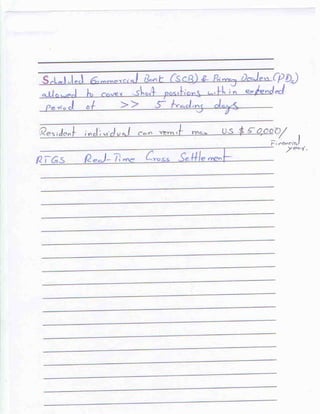 Scheduled Commercial Bank (SCB) & Primary Dealers (PDs)
allowed to cover short positions within extended
period of >> 5 trading days
Resident individual can remit max US $ 50,000/
Financial year.
RTGS Real-Time Gross Settlement